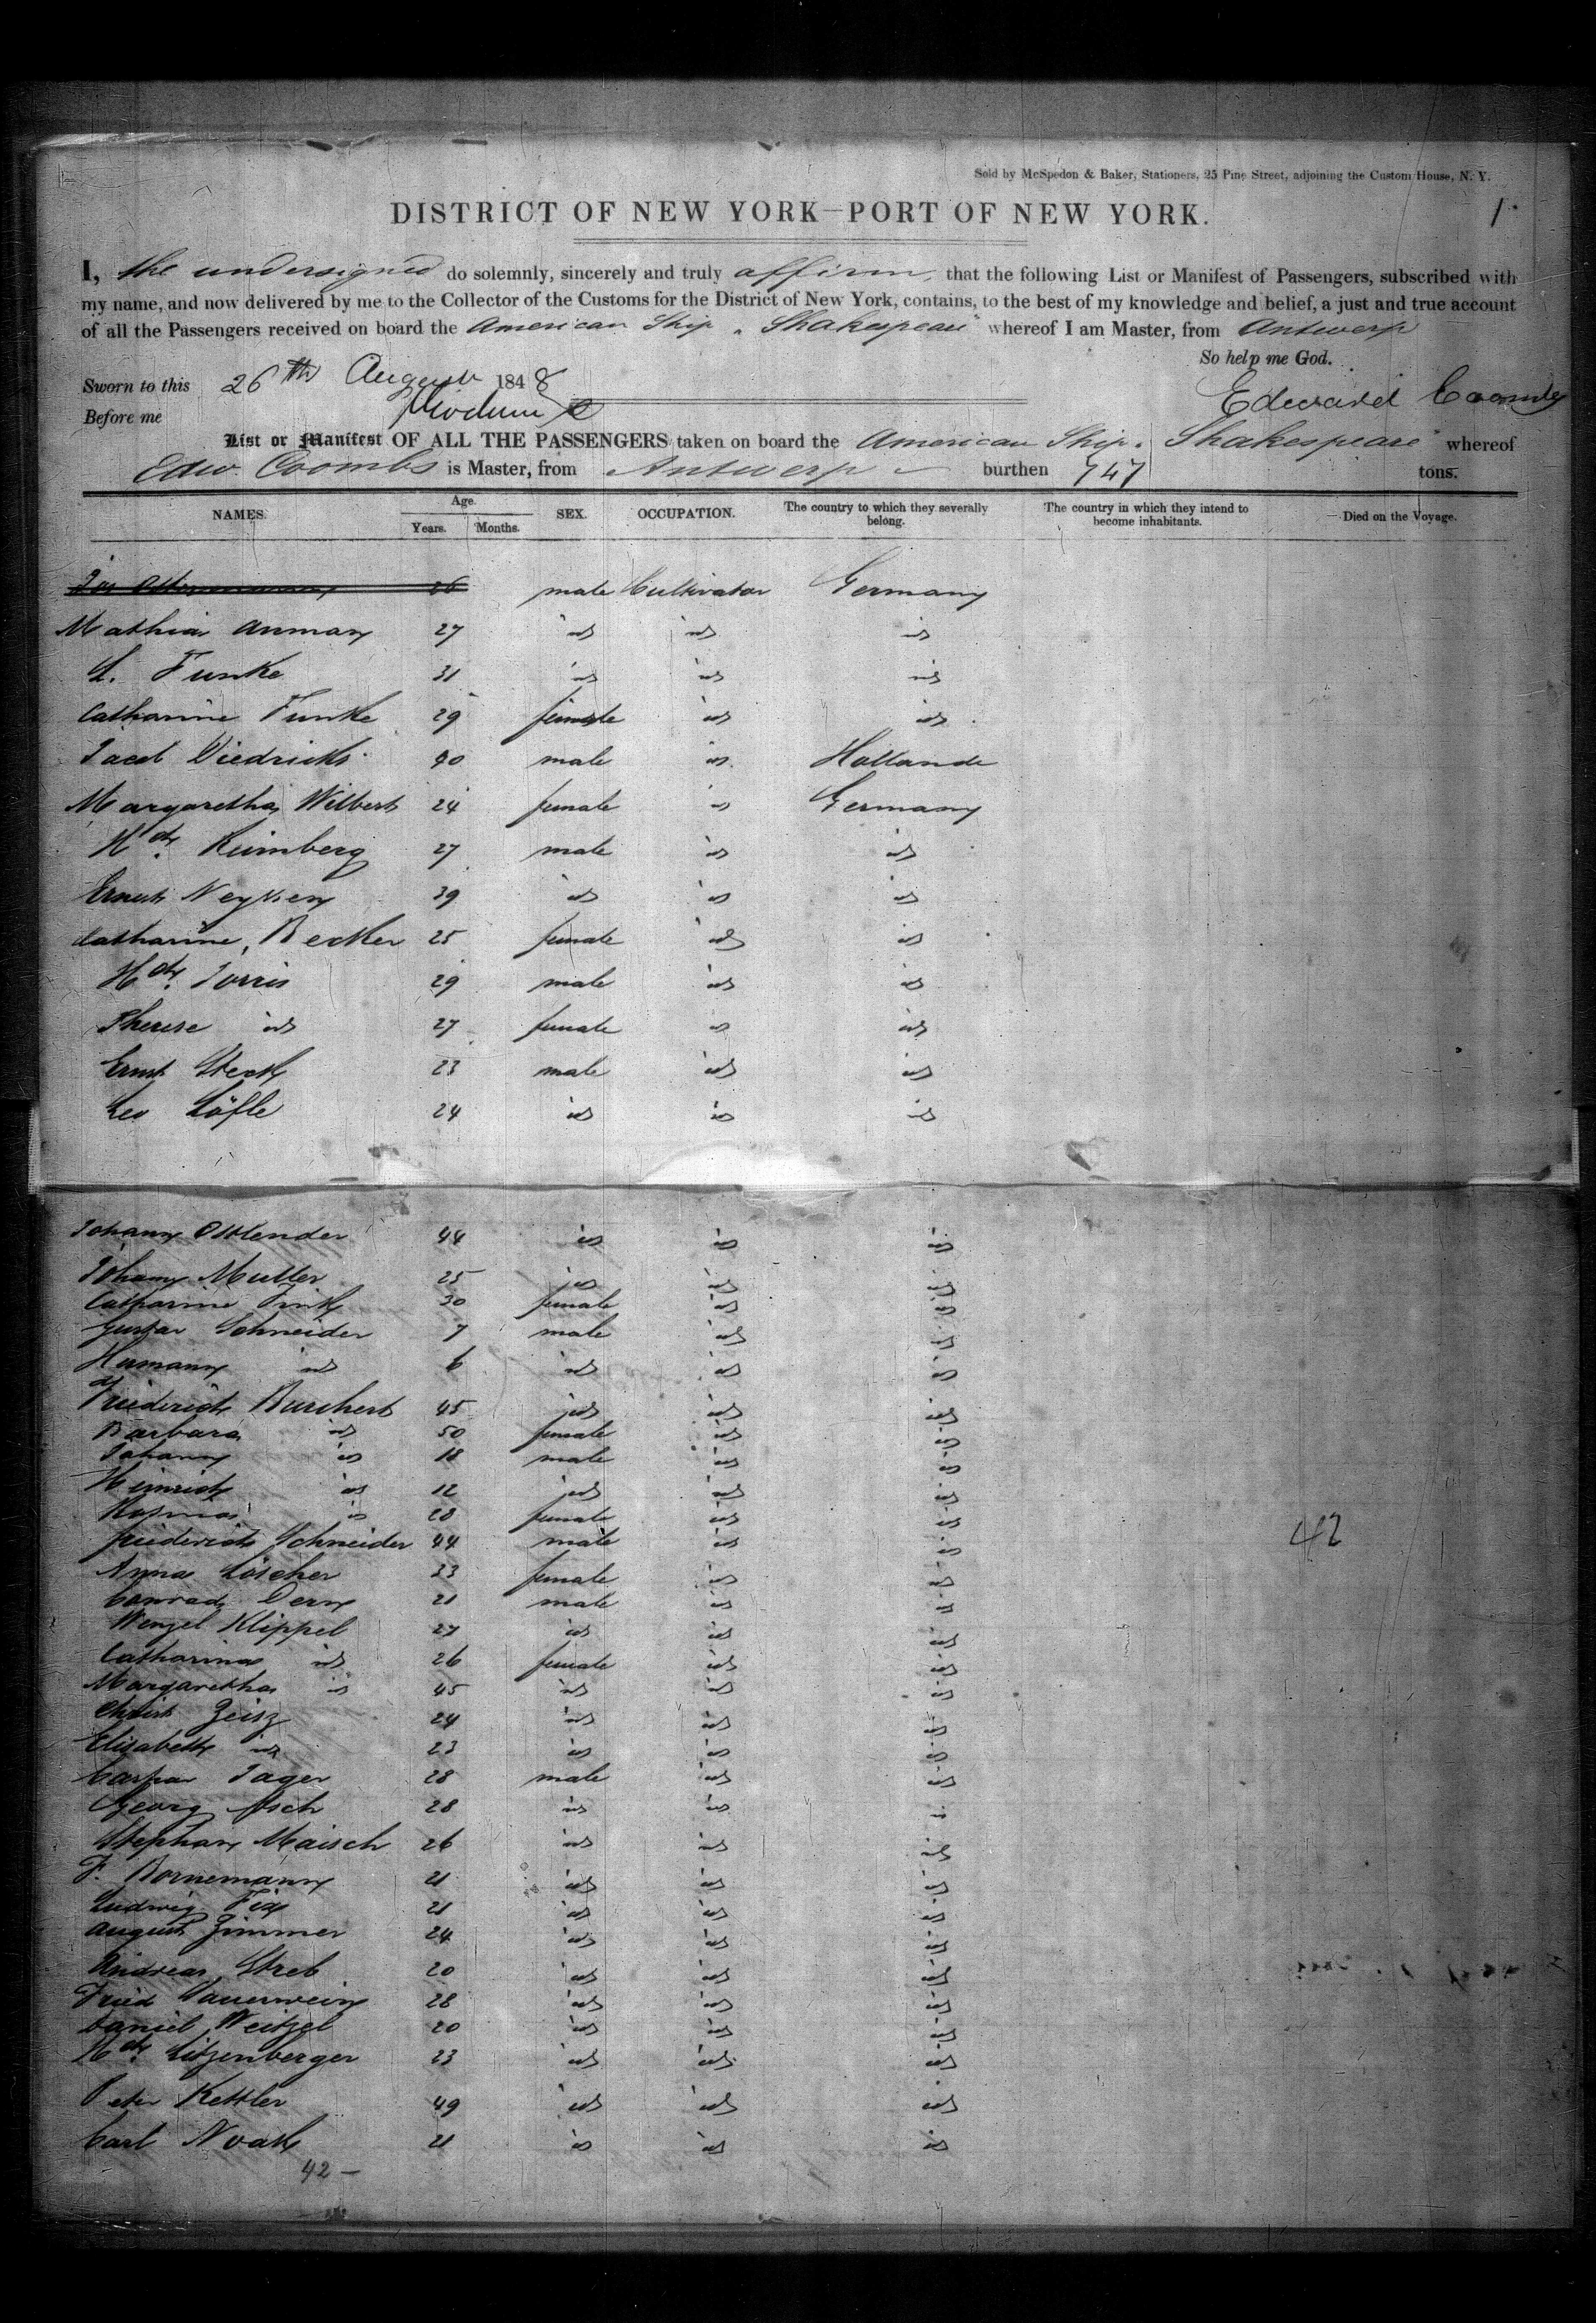 Sold by McSpedon & Baker, Stationers, 25 Pine Street, adjoining the Custom House, N. Y.
1.
DISTRICT OF NEW YORK—PORT OF NEW YORK.
I, the undersigned do solemnly, sincerely and truly affirm that the following List or Manifest of Passengers, subscribed with
my name, and now delivered by me to the Collector of the Customs for the District of New York, contains, to the best of my knowledge and belief, a just and true account
of all the Passengers received on board the American Ship "Shakespeare" whereof I am Master, from Antwerp
So help me God.
Sworn to this 26th August 1848
Edward Coombs
Before me
List or Manifest OF ALL THE PASSENGERS taken on board the American Ship "Shakespeare" whereof
Edw. Coombs is Master, from Antwerp burthen 747 tons.
NAMES. Age. Years. Months. SEX. OCCUPATION. The country to which they severally belong. The country in which they intend to become inhabitants. Died on the Voyage.
26 male Cultivator Germany
Mathias 27 id id id
L. Funke 31 id id id
Catharine Funke 29 female id id
Jacob Diedricks 40 male id Hollande
Margaretha Wilbert 24 female id Germany
Hch. Reimberg 27 male id id
Ernest 39 id id id
Catharine Becker 25 female id id
Hch. Jorris 29 male id id
Therese id 27 female id id
Ernst Steck 23 male id id
Leo Löfle 24 id id id
Johann Ostlender 44 id id id
Johann Muller 25 id id id
Catharine Fink 30 female id id
Gustav Schneider 7 male id id
Hermann id 6 id id id
Friederich Burchert 45 id id id
Barbara id 50 female id id
Johann id 18 male id id
Heinrich id 12 id id id
id 28 female id id
Friederich Schneider 44 male id id
42
Anna Löscher 33 female id id
Conrad Dern 21 male id id
Wenzel Klippel 27 id id id
Catharina id 26 female id id
Margaretha id 45 id id id
Christ Zeisz 24 id id id
Elisabeth id 23 id id id
Caspar Jager 28 male id id
Georg Asch 28 id id id
Stephan Maisch 26 id id id
F. Bornemann 21 id id id
Ludwig Fix 21 id id id
August Zimmer 24 id id id
Andreas Streb 20 id id id
Fried Sauerwein 28 id id id
Daniel Weitzel 20 id id id
Hch. Litzenberger 23 id id id
Peter Kettler 49 id id id
Carl Noak 21 id id id
42 —